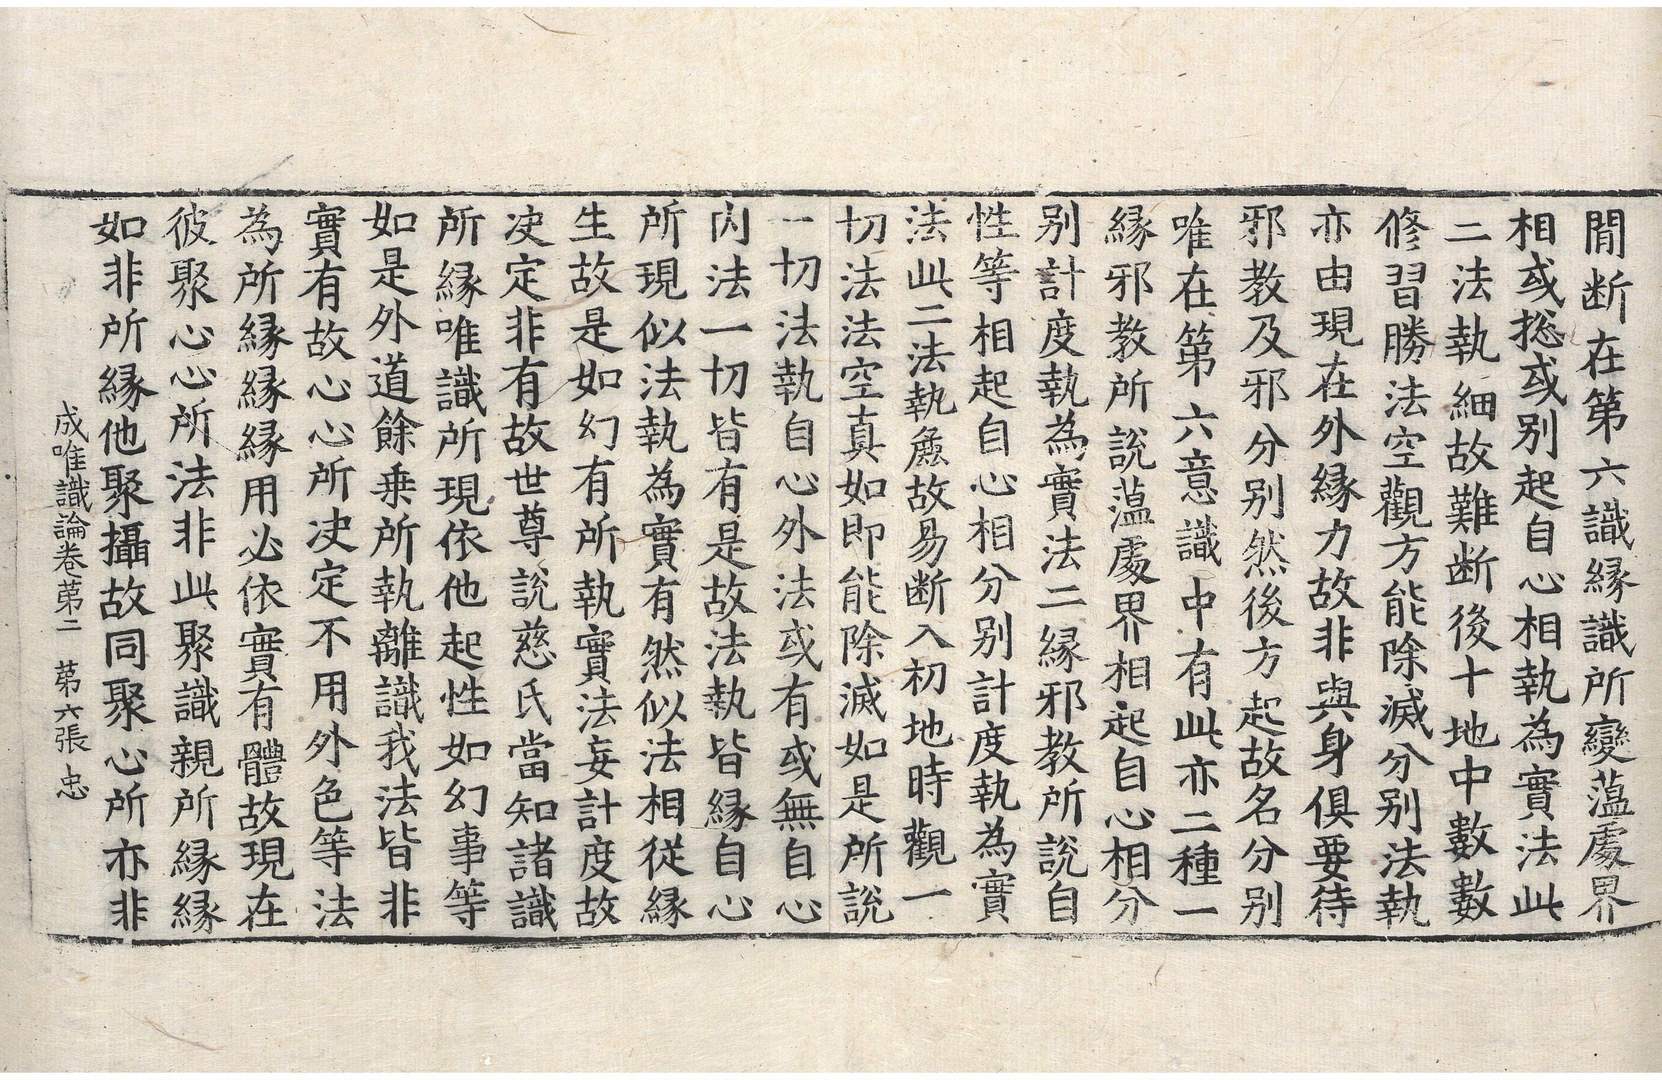 間断在第六識縁識所變蕰處界
相或捴或别起自心相執為實法此
二法執細故難断後十地中數數
修習勝法空觀方能除滅分别法執
亦由現在外縁力故非與身俱要待
邪教及邪分别然後方起故名分别
唯在第六意識中有此亦二種一
縁邪教所說蕰處界相起自心相分
别計度執為實法二縁邪教所說自
性等相起自心相分别計度執為實
法此二法執麁故易断入初地時觀一
切法法空真如即能除滅如是所說
一切法執自心外法或有或無自心
内法一切皆有是故法執皆縁自心
所現似法執為實有然似法相從縁
生故是如幻有所執實法妄計度故
决定非有故世尊說慈氏當知諸識
所縁唯識所現依他起性如幻事等
如是外道餘乗所執離識我法皆非
實有故心心所决定不用外色等法
為所縁縁縁用必依實有體故現在
彼聚心心所法非此聚識親所縁縁
如非所縁他聚攝故同聚心所亦非
成唯識論卷苐二 苐六張 忠